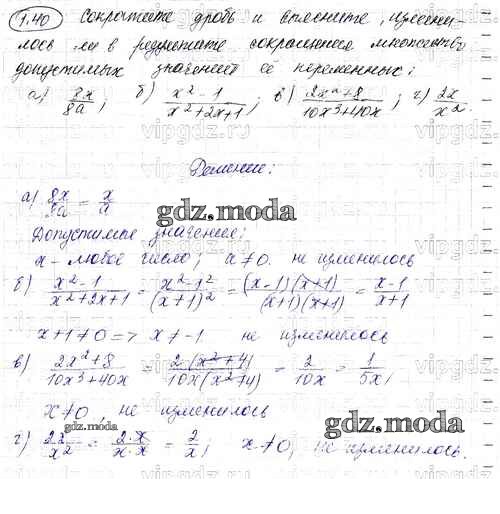 1.40 Сократите дробь и выясните, измени-
лось ли в результате сокращения множество
допустимых значений её переменных:
а) 8x/8a; б) x²-1/x²+2x+1; в) 2x²+8/10x³+40x; г) 2x/x².
Решение:
а) 8x/8a = x/a
gdz.moda
Допустимые значения:
x - любое число; a≠0. не изменилось
б) x²-1/x²+2x+1 = x²-1²/(x+1)² = (x-1)(x+1)/(x+1)(x+1) = x-1/x+1
x+1≠0 => x≠-1 не изменилось
в) 2x²+8/10x³+40x = 2(x²+4)/10x(x²+4) = 2/10x = 1/5x;
gdz.moda
x≠0, не изменилось
г) 2x/x² = 2·x/x·x = 2/x; x≠0, не изменилось.